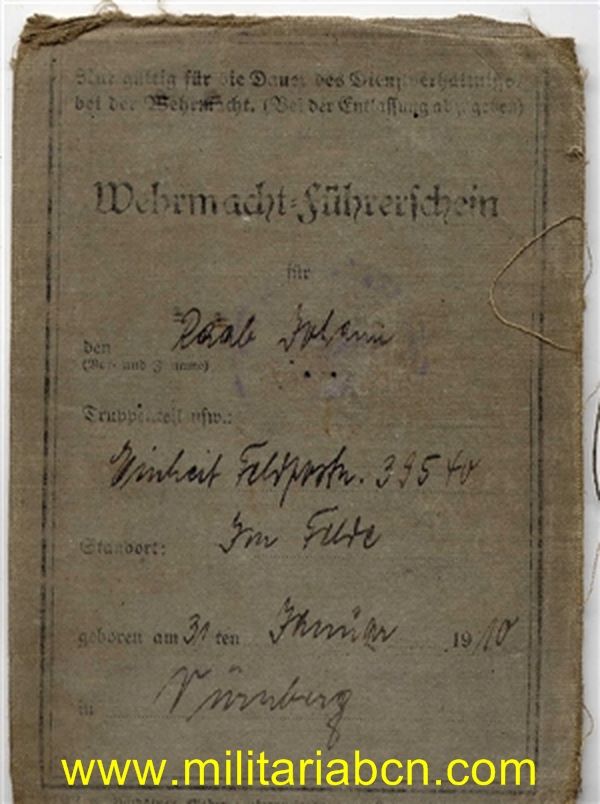 Nur gültig für die Dauer des Dienstverhältnisses
bei der Wehrmacht. (Bei der Entlassung abzugeben)
Wehrmacht=Führerschein
für
den Raab Johann
(Vor- und Zuname)
Truppenteil usw.:
Einheit Feldpostn. 39540
Standort: Im Felde
geboren am 31 ten Januar 1910
in Nürnberg
www.militariabcn.com